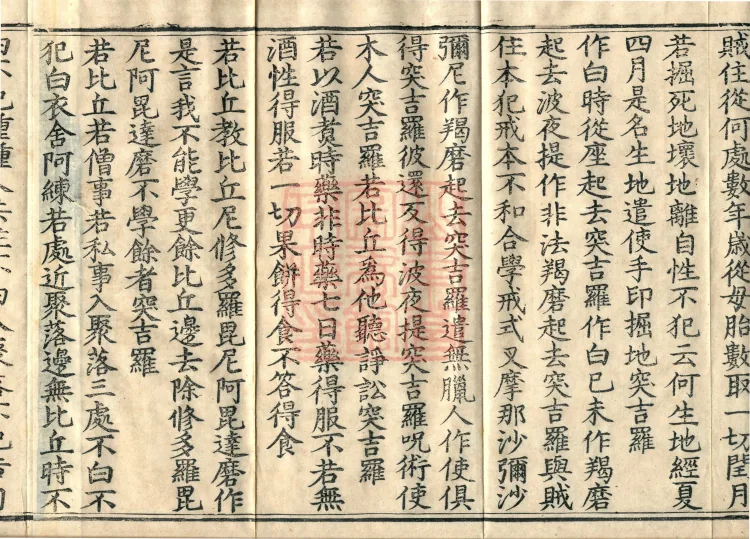 賊住從何處數年歲從母胎數取一切閏月
若掘死地壞地離自性不犯云何生地經夏
四月是名生地遣使手印掘地突吉羅
作白時從座起去突吉羅作白已未作羯磨
起去波夜提作非法羯磨起去突吉羅與賊
住本犯戒本不和合學戒式叉摩那沙彌沙
彌尼作羯磨起去突吉羅遣無臘人作使俱
得突吉羅彼還反得波夜提突吉羅呪術使
木人突吉羅若比丘為他聽諍訟突吉羅
若以酒煮時藥非時藥七日藥得服不若無
酒性得服若一切果餅得食不答得食
若比丘教比丘尼修多羅毘尼阿毘達磨作
是言我不能學更餘比丘邊去除修多羅毘
尼阿毘達磨不學餘者突吉羅
若比丘若僧事若私事入聚落三處不白不
犯白衣舍阿練若處近聚落邊無比丘時不